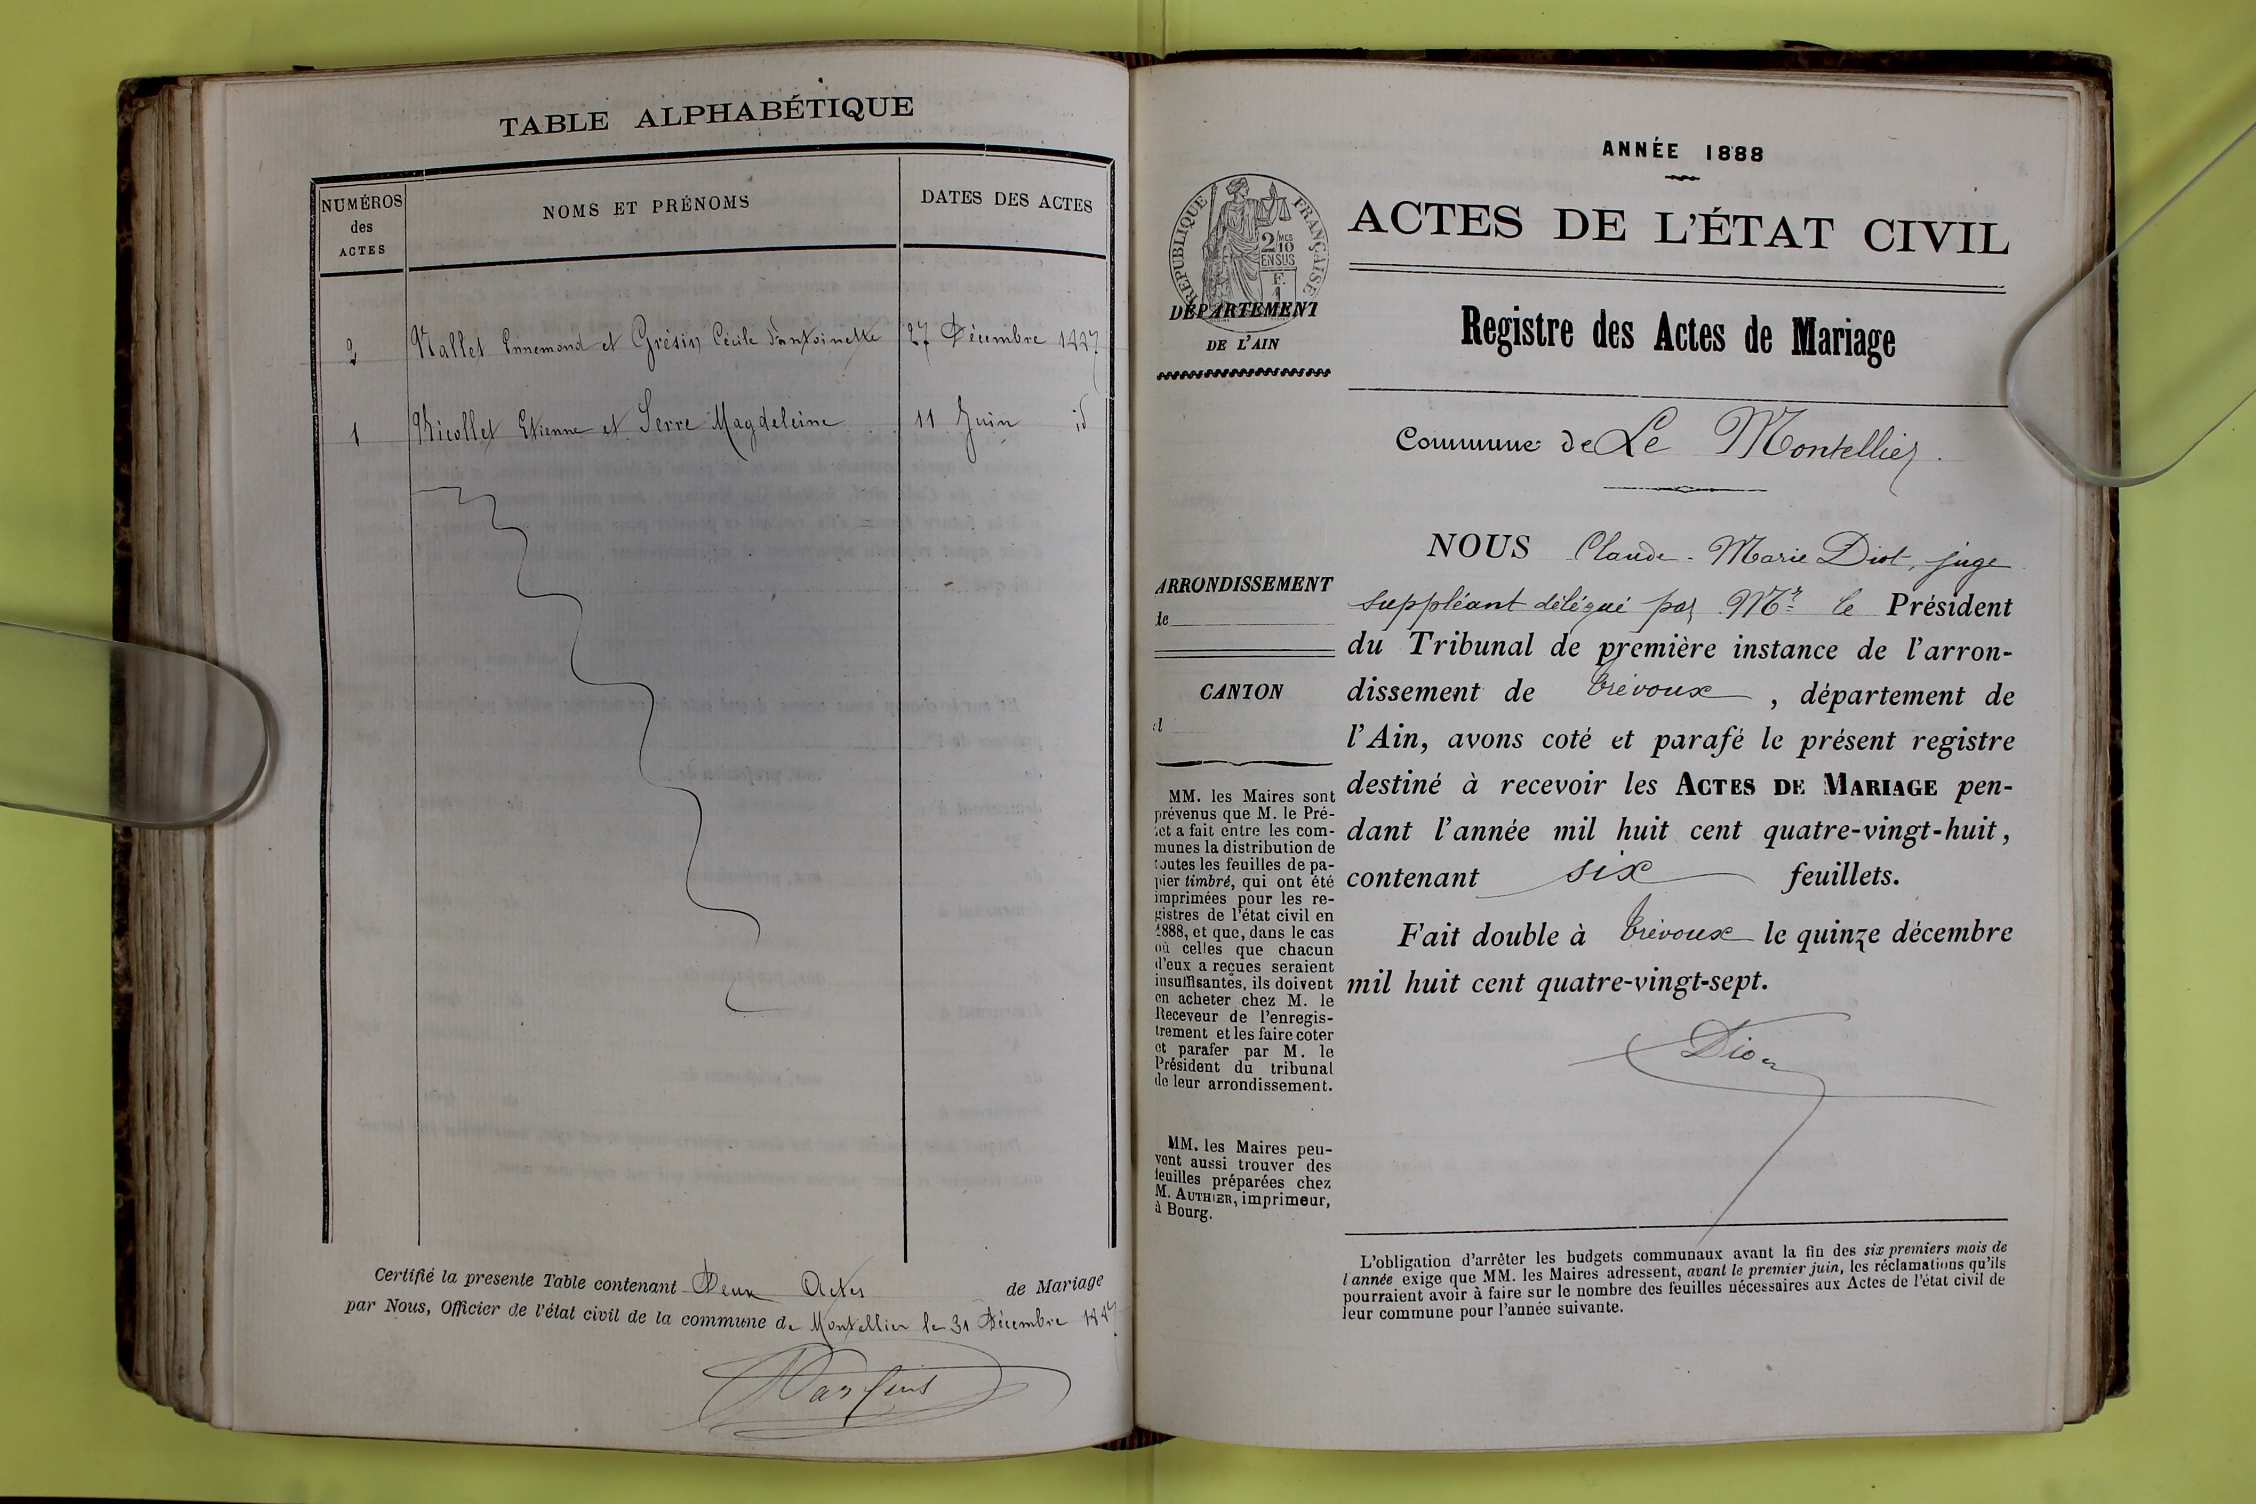 TABLE ALPHABÉTIQUE
NUMÉROS des ACTES
NOMS ET PRÉNOMS
DATES DES ACTES
2 Nallet Ennemond et Grésin Cécile Antoinette 27 Décembre 1887
1 Nicollet Etienne et Serre Magdeleine 11 Juin id
Certifié la presente Table contenant Deux Actes de Mariage
par Nous, Officier de l'état civil de la commune de Montellier le 31 Décembre 1887
ANNÉE 1888
RÉPUBLIQUE FRANÇAISE
2 MES
10
EN SUS
F.
1
DÉPARTEMENT
DE L'AIN
ACTES DE L'ÉTAT CIVIL
Registre des Actes de Mariage
Commune de Le Montellier.
ARRONDISSEMENT
de
CANTON
d
MM. les Maires sont
prévenus que M. le Pré-
fet a fait entre les com-
munes la distribution de
toutes les feuilles de pa-
pier timbré, qui ont été
imprimées pour les re-
gistres de l'état civil en
1888, et que, dans le cas
où celles que chacun
d'eux a reçues seraient
insuffisantes, ils doivent
en acheter chez M. le
Receveur de l'enregis-
trement et les faire coter
et parafer par M. le
Président du tribunal
de leur arrondissement.
MM. les Maires peu-
vent aussi trouver des
feuilles préparées chez
M. AUTHIER, imprimeur,
à Bourg.
NOUS Claude-Marie Diot, juge
suppléant délégué par Mr le Président
du Tribunal de première instance de l'arron-
dissement de Trévoux, département de
l'Ain, avons coté et parafé le présent registre
destiné à recevoir les ACTES DE MARIAGE pen-
dant l'année mil huit cent quatre-vingt-huit,
contenant six feuillets.
Fait double à Trévoux le quinze décembre
mil huit cent quatre-vingt-sept.
Diot
L'obligation d'arrêter les budgets communaux avant la fin des six premiers mois de
l'année exige que MM. les Maires adressent, avant le premier juin, les réclamations qu'ils
pourraient avoir à faire sur le nombre des feuilles nécessaires aux Actes de l'état civil de
leur commune pour l'année suivante.